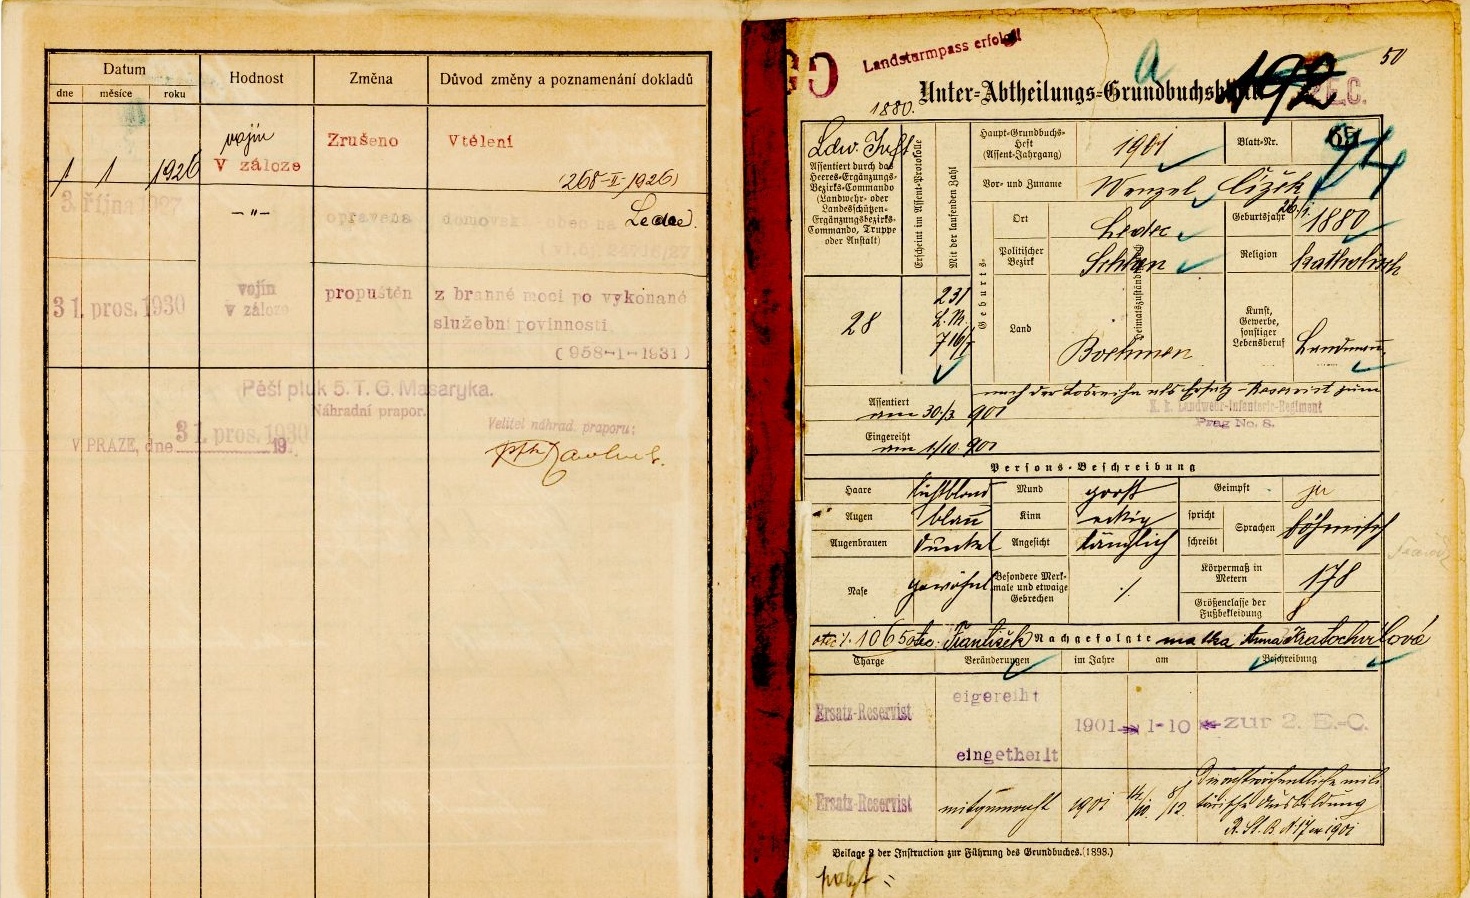 Datum
Hodnost
Změna
Důvod změny a poznamenání dokladů
dne
měsíce
roku
1 1 1926
vojín
V záloze
Zrušeno
Vtělení
(268-II-1926)
3. října 1927
–"–
opravena
domovsk. obec na Ledec.
31. pros. 1930
vojín
v záloze
propuštěn
z branné moci po vykonané
služební povinnosti
(958-I-1931)
Pěší pluk 5. T. G. Masaryka.
Náhradní prapor.
V PRAZE, dne 31. pros. 1930
19
Velitel náhrad. praporu:
Landsturmpass erfolgt!
50
a
Unter-Abtheilungs-Grundbuchsblatt
192
E.C.
1880.
Ldw. Inft.
Assentiert durch das
Heeres-Ergänzungs-
Bezirks-Commando
(Landwehr- oder
Landesschützen-
Ergänzungsbezirks-
Commando, Truppe
oder Anstalt)
Erscheint im Assent-Protokolle
Mit der laufenden Zahl
28
231
Haupt-Grundbuchs-
Heft
(Assent-Jahrgang)
1901
Blatt-Nr.
Vor- und Zuname
Wenzel Čížek
Geburts-
Ort
Ledec
Geburtsjahr
26/1.
1880
Politischer
Bezirk
Schlan
Religion
katholisch
Heimatszuständigkeit
Land
Boehmen
Kunst,
Gewerbe,
sonstiger
Lebensberuf
Landmann
Assentiert
am 30/3 901
nach der Losreihe als Ersatz-Reservist zum
K. k. Landwehr-Infanterie-Regiment
Prag No. 8.
Eingereiht
am 1/10 901
Persons-Beschreibung
Haare
lichtblond
Mund
groß
Geimpft
ja
Augen
blau
Kinn
eckig
spricht
schreibt
Sprachen
böhmisch
Augenbrauen
dunkel
Angesicht
länglich
Nase
gewöhnl.
Besondere Merk-
male und etwaige
Gebrechen
./.
Körpermaß in
Metern
178
Größenclasse der
Fußbekleidung
8
1065 otec: František Nachgefolgte matka Anna Kratochvílová
Charge
Veränderungen
im Jahre
am
Beschreibung
Ersatz-Reservist
eigereiht
eingetheilt
1901
1-10
zur 2. E.-C.
Ersatz-Reservist
mitgemacht
1901
14/10. 8/12.
die achtwöchentliche mili
tärische Ausbildung
R. St. B. N 17 ex 1901
Beilage 2 der Instruction zur Führung des Grundbuches. (1898.)